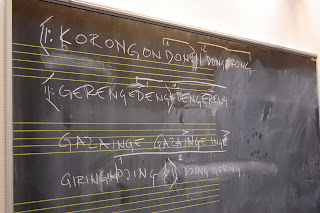 KORONGONDONG DONGORONG
GERENGEDENG DENGERENG
GAZAINGE GAZAINGE INGE
GIRINGINDJING DJING GIRING